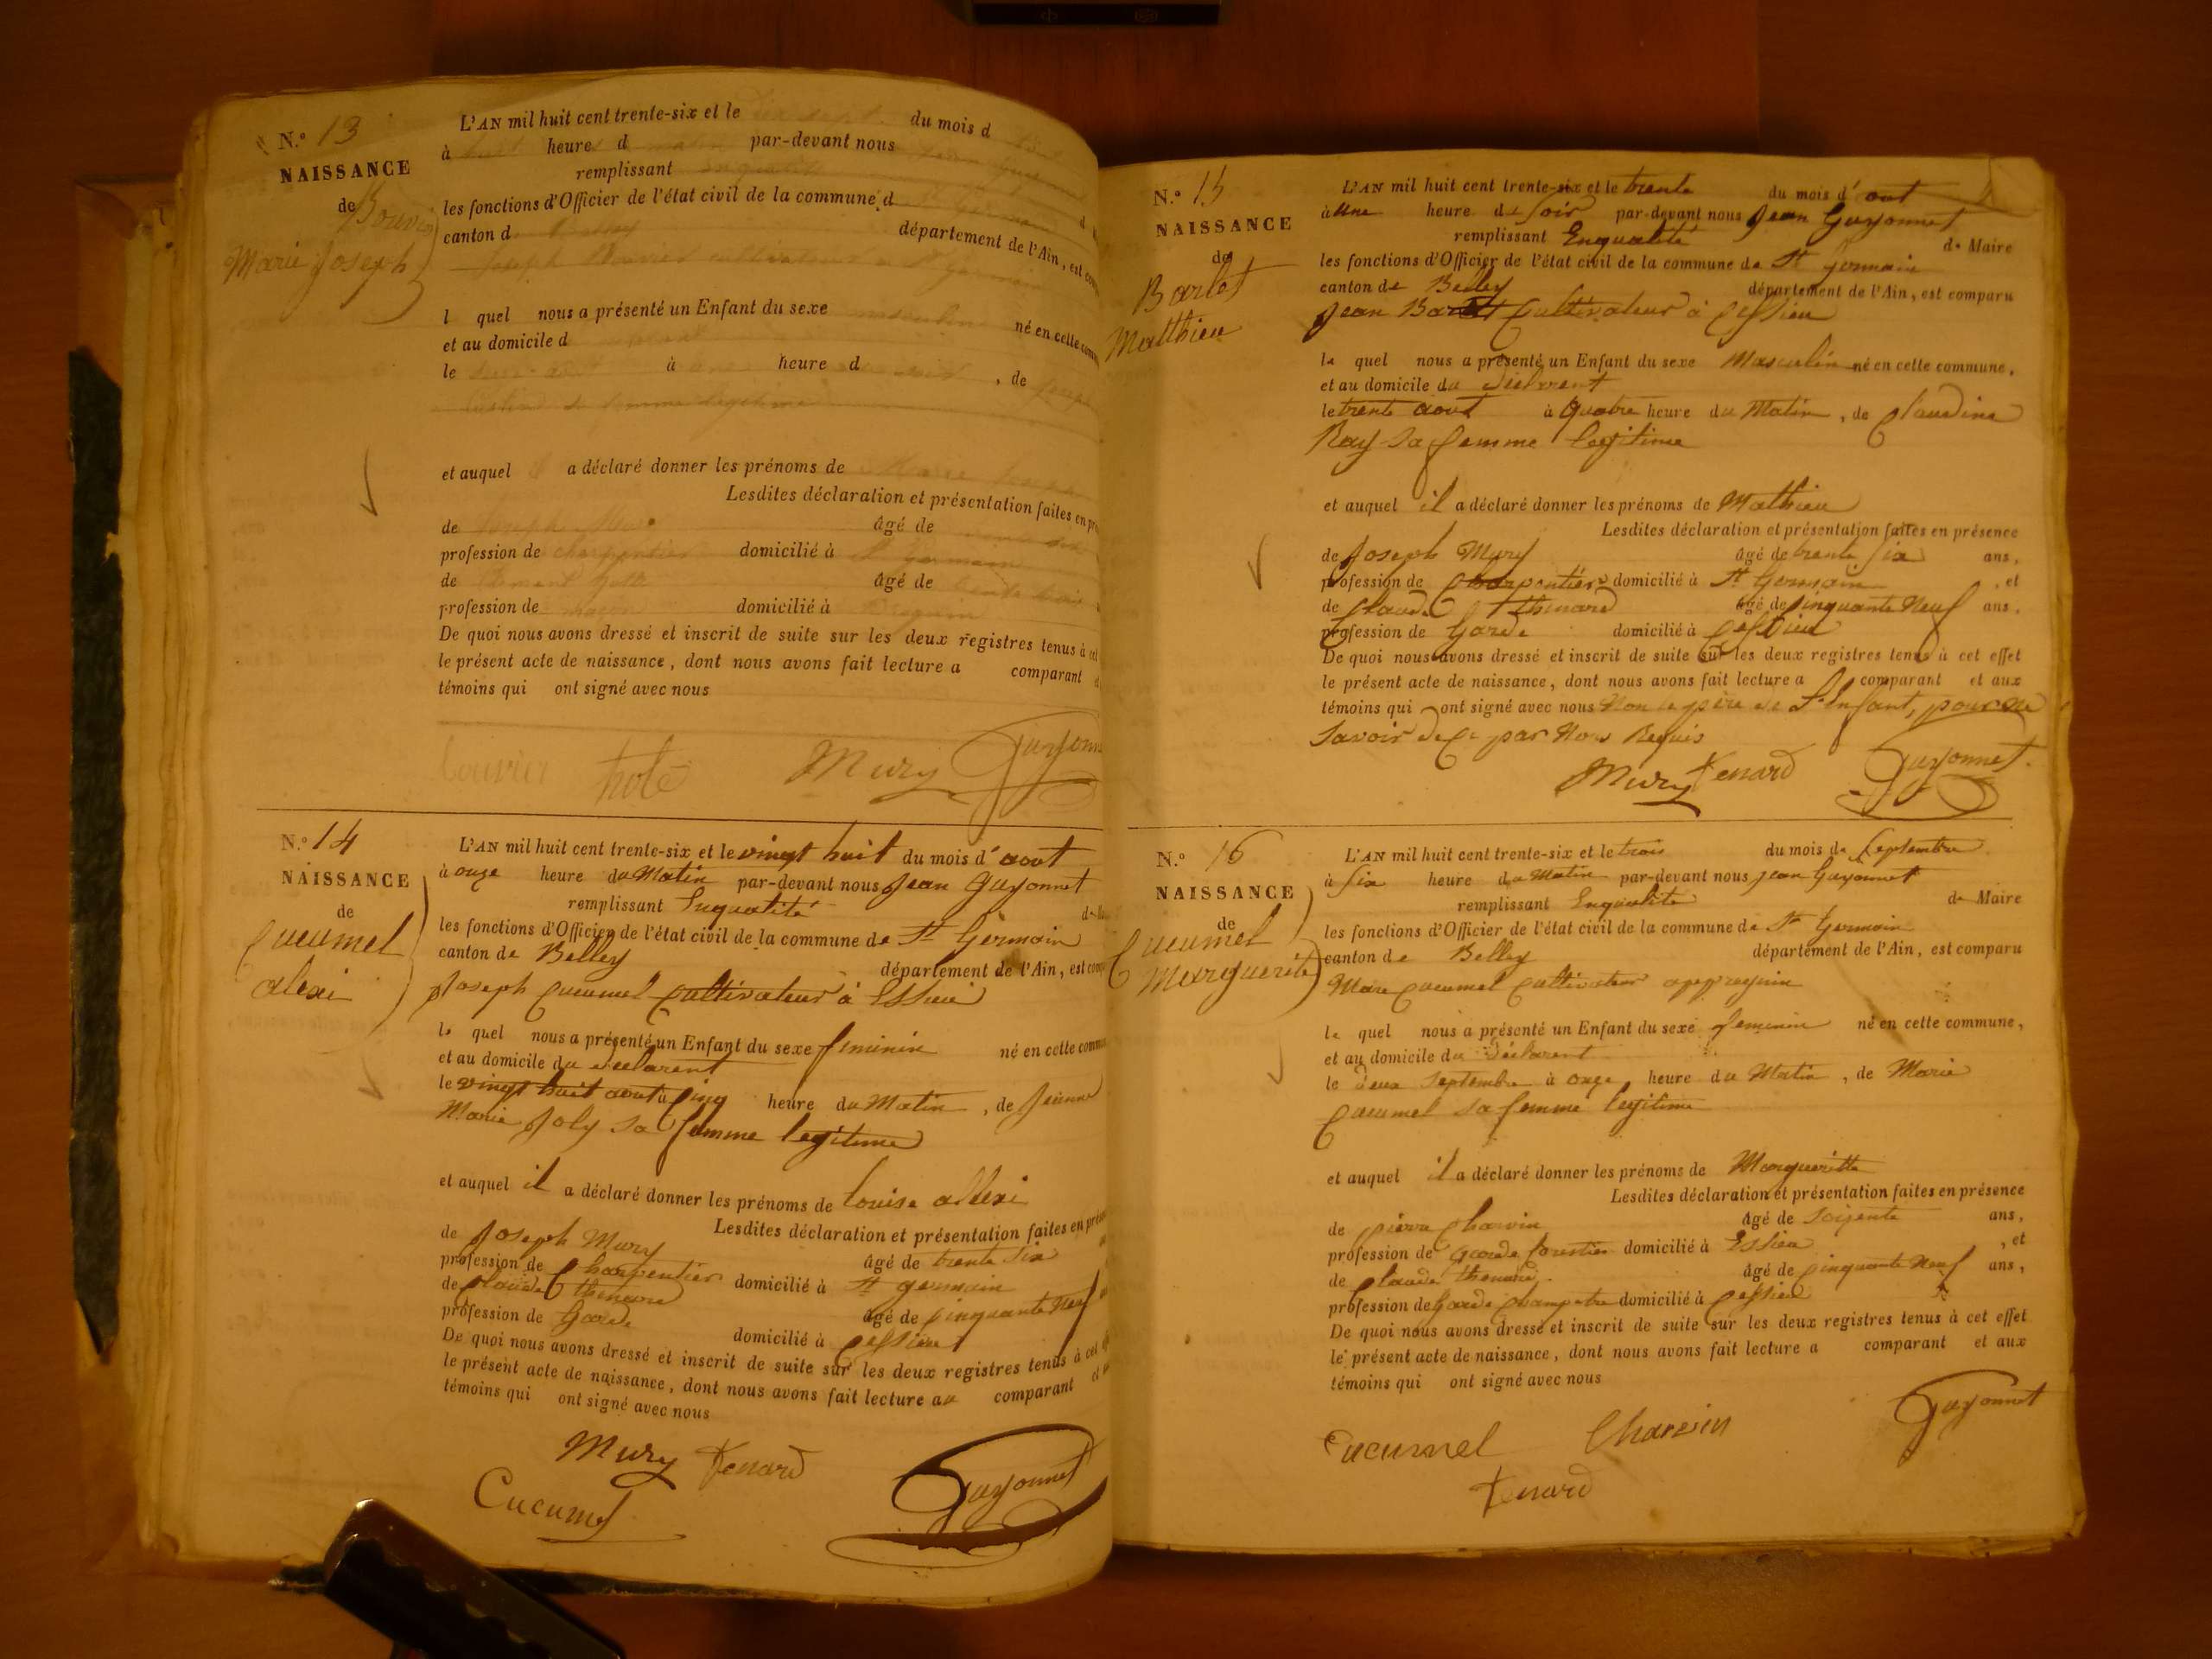 N.o 13
NAISSANCE
de Bouvier
Marie Joseph
L'AN mil huit cent trente-six et le du mois d
à huit heures d matin par-devant nous
remplissant
les fonctions d'Officier de l'état civil de la commune d
canton d Belley département de l'Ain, est
Joseph Bouvier cultivateur a St Germain
l quel nous a présenté un Enfant du sexe masculin né en cette
et au domicile d
le à heure d , de
sa femme legitime
et auquel il a déclaré donner les prénoms de Marie
Lesdites déclaration et présentation faites en
de Joseph âgé de trente six
profession de charpentier domicilié à St Germain
de âgé de trente
profession de domicilié à
De quoi nous avons dressé et inscrit de suite sur les deux registres tenus à cet
le présent acte de naissance, dont nous avons fait lecture a comparant
témoins qui ont signé avec nous
bouvier Mury Guyonn
N.o 14
NAISSANCE
de
Cucumel
alexi
L'AN mil huit cent trente-six et le vingt huit du mois d'aout
à onze heure du Matin par-devant nous Jean Guyonnet
remplissant Enqualité de
les fonctions d'Officier de l'état civil de la commune de St Germain
canton de Belley département de l'Ain, est
Joseph Cucumel Cultivateur à Essieu
le quel nous a présenté un Enfant du sexe feminin né en cette
et au domicile du declarent
le vingt huit aout à Cinq heure du Matin , de Jeanne
Marie Joly sa femme legitime
et auquel il a déclaré donner les prénoms de Louise allexi
Lesdites déclaration et présentation faites en
de Joseph Mury âgé de trente six
profession de Charpentier domicilié à St germain
de Claude thenard âgé de Cinquante Neuf
profession de Garde domicilié à Cessieu
De quoi nous avons dressé et inscrit de suite sur les deux registres tenus à cet
le présent acte de naissance, dont nous avons fait lecture au comparant
témoins qui ont signé avec nous
Mury tenard
Cucumel Guyonnet
N.o 15
NAISSANCE
de
Barlet
Matthieu
L'AN mil huit cent trente-six et le trente du mois d'aout
à Une heure de Soir par-devant nous Jean Guyonnet
remplissant Enqualité de Maire
les fonctions d'Officier de l'état civil de la commune de St Germain
canton de Belley département de l'Ain, est comparu
Jean Barlet Cultivateur à Cessieu
le quel nous a présenté un Enfant du sexe Masculin né en cette commune,
et au domicile du declarent
le trente aout à Quatre heure du Matin , de Claudine
Ray sa femme legitime
et auquel il a déclaré donner les prénoms de Mathieu
Lesdites déclaration et présentation faites en présence
de Joseph Mury âgé de trente six ans,
profession de Charpentier domicilié à St Germain , et
de Claude thenard âgé de Cinquante Neuf ans,
profession de Garde domicilié à Cessieu
De quoi nous avons dressé et inscrit de suite sur les deux registres tenus à cet effet
le présent acte de naissance, dont nous avons fait lecture a comparant et aux
témoins qui ont signé avec nous Non le père de L'Enfant, pour Ne
Savoir de Ce par Nous Requis
Mury tenard Guyonnet
N.o 16
NAISSANCE
de
Cucumel
Marguerite
L'AN mil huit cent trente-six et le trois du mois de Septembre
à Six heure du Matin par-devant nous Jean Guyonnet
remplissant Enqualité de Maire
les fonctions d'Officier de l'état civil de la commune de St Germain
canton de Belley département de l'Ain, est comparu
Marc Cucumel Cultivateur appregnin
le quel nous a présenté un Enfant du sexe feminin né en cette commune,
et au domicile du declarent
le deux Septembre à onze heure du Matin , de Marie
Cucumel sa femme legitime
et auquel il a déclaré donner les prénoms de Margueritte
Lesdites déclaration et présentation faites en présence
de pierre Charvin âgé de Soixente ans,
profession de garde forestier domicilié à Essieu , et
de Claude thenard âgé de Cinquante Neuf ans,
profession de Garde Champetre domicilié à Cessieu
De quoi nous avons dressé et inscrit de suite sur les deux registres tenus à cet effet
le présent acte de naissance, dont nous avons fait lecture a comparant et aux
témoins qui ont signé avec nous
Cucumel Charvin Guyonnet
tenard